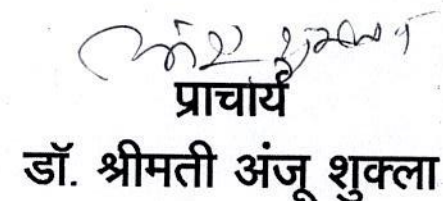 प्राचार्य
डॉ. श्रीमती अंजू शुक्ला